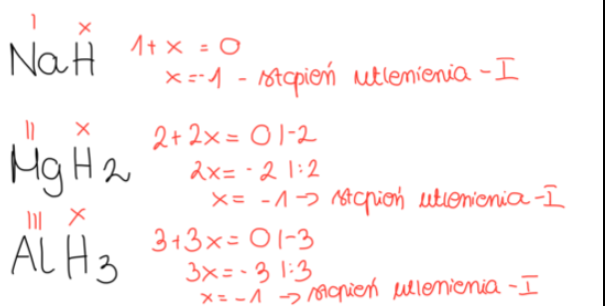 I x
NaH 1+x=0
x=-1 - stopień utlenienia -I
II x
MgH2 2+2x=0 |-2
2x=-2 |:2
x= -1 -> stopień utlenienia -I
III x
AlH3 3+3x=0 |-3
3x=-3 |:3
x=-1 -> stopień utlenienia -I